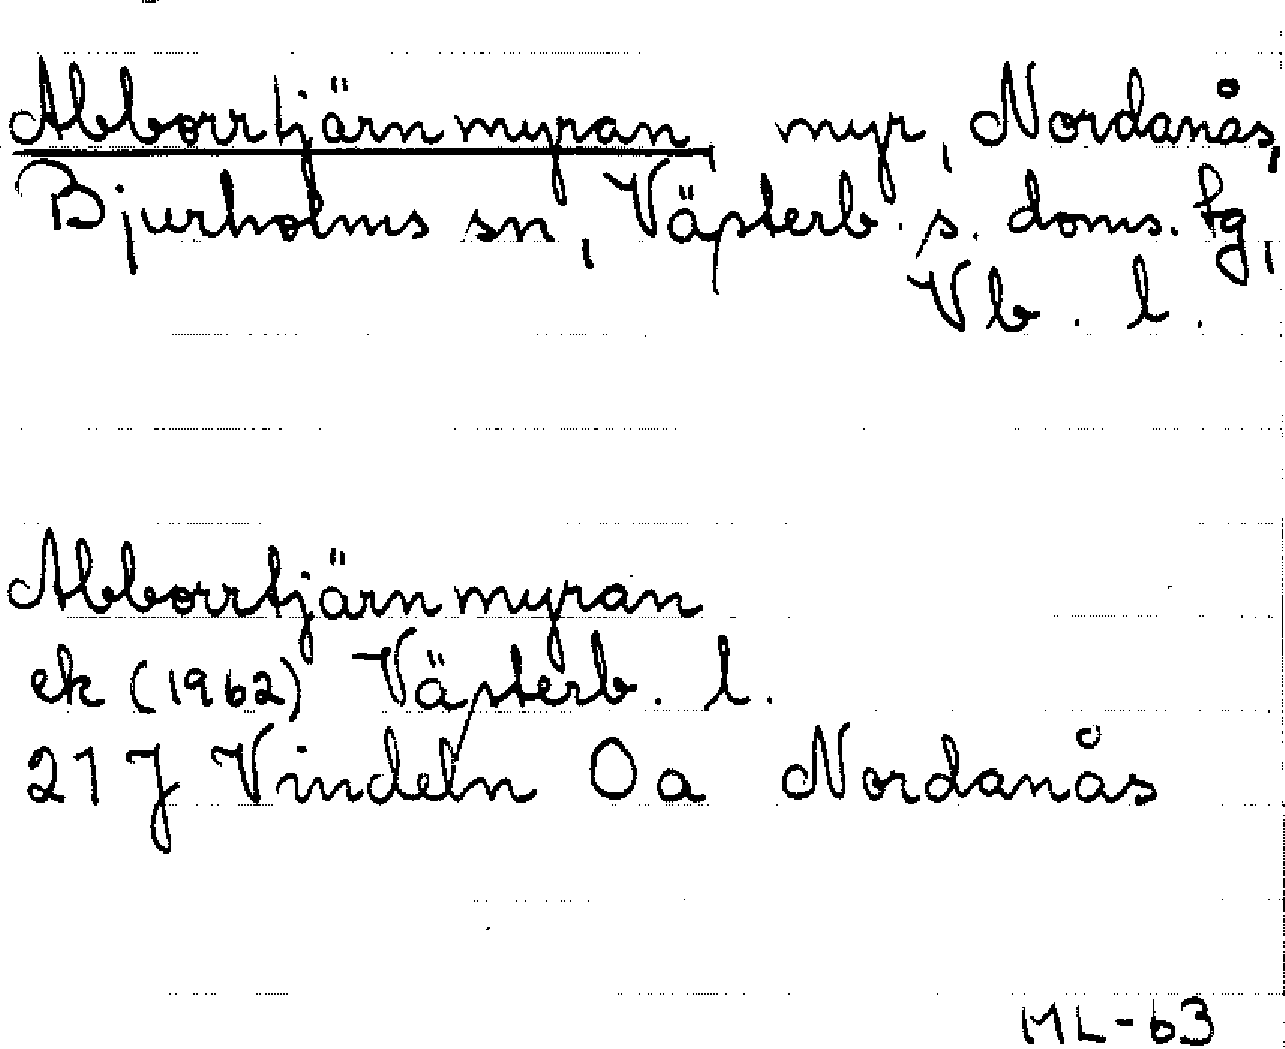 Abborrtjärnmyran, myr, Nordanås,
Bjurholms sn, Västerb. s. doms. tg,
Vb. l.
Abborrtjärnmyran
ek (1962) Västerb. l.
21 J Vindeln 0a Nordanås
ML-63